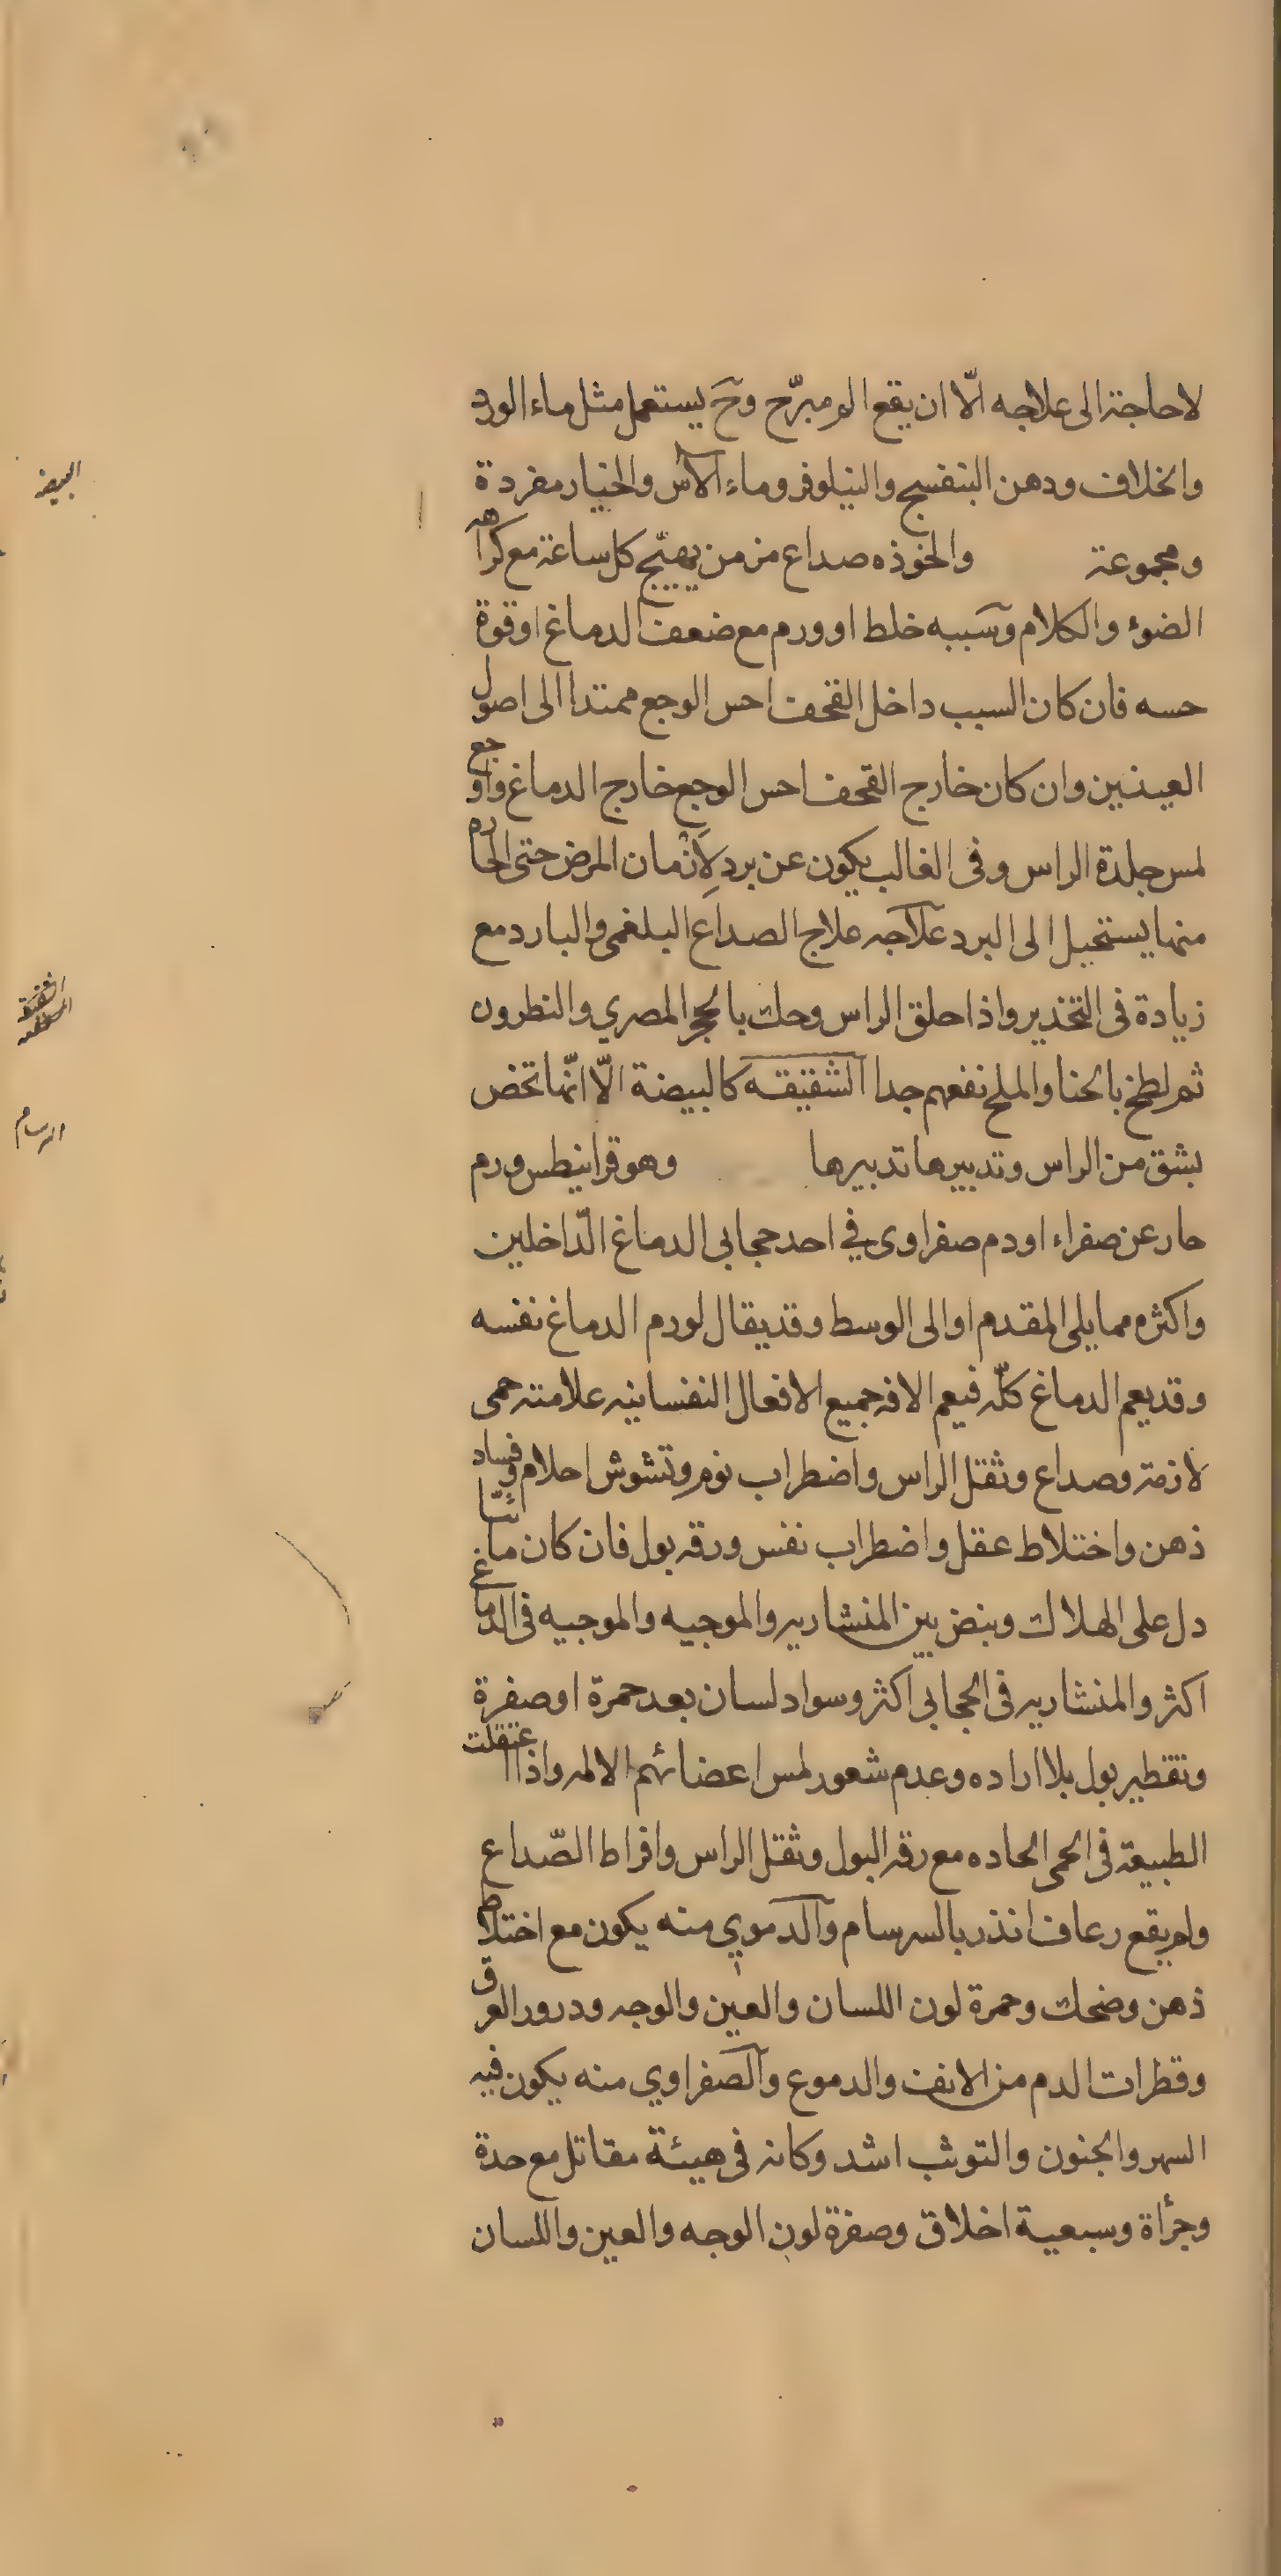 لا حاجة الى علاجه الّا ان يقع الم مبرّح وحَ يستعمل مثل ماء الورد
والخلاف ودهن البنفسج والنيلوفر وماء الآس والخيار مفردة
البيضه
ومجموعة والخوذه صداع مزمن يهيّج كل ساعة مع كراهه
الضوء والكلام وسببه خلط او ورم مع ضعف الدماغ او قوة
حسه فان كان السبب داخل القحف احس الوجع ممتدا الى اصول
العينين وان كان خارج القحف احس الوجع خارج الدماغ واوجع
لمس جلدة الراس وفى الغالب يكون عن برد لازمان المرض حتى الحاره
منها يستحيل الى البرد علاجه علاج الصداع البلغمى والبارد مع
زيادة فى التخذير واذا حلق الراس وحك بالحجر المصري والنطرون
الشقيقه
ثم لطخ بالحنا والملح نفعهم جدا الشقيقه كالبيضة الّا انّها تخض
السرسام
بشق من الراس وتدبيرها تدبيرها وهو قرانيطس ورم
حار عن صفراء او دم صفراوى في احد حجابى الدماغ الدّاخلين
واكثره مما يلى المقدم او الى الوسط وقد يقال لورم الدماغ نفسه
وقد يعم الدماغ كلّه فيعم الافه جميع الافعال النفسانيه علامته حمى
لازمة وصداع وثقل الراس واضطراب نوم وتشوش احلام وفساد
ذهن واختلاط عقل واضطراب نفس ورقه بول فان كان مائيّا
دل على الهلاك ونبض بين المنشاريه والموجيه والموجيه فى الدماغ
اكثر والمنشاريه فى الحجابى اكثر وسواد لسان بعد حمرة او صفرة
وتقطير بول بلا اراده وعدم شعور لمس اعضائهم الالمه واذا اعتقلت
الطبيعة فى الحمى الحاده مع رقه البول وثقل الراس وافراط الصّداع
ولم يقع رعاف انذر بالسرسام والدموي منه يكون مع اختلاط
ذهن وضحك وحمرة لون اللسان والعين والوجه ودرور العرق
وقطرات الدم من الانف والدموع والصفراوي منه يكون فيه
السهر والجنون والتوثب اشد وكانه فى هيئة مقاتل مع حدة
وجرأة وسبعية اخلاق وصفرة لون الوجه والعين واللسان